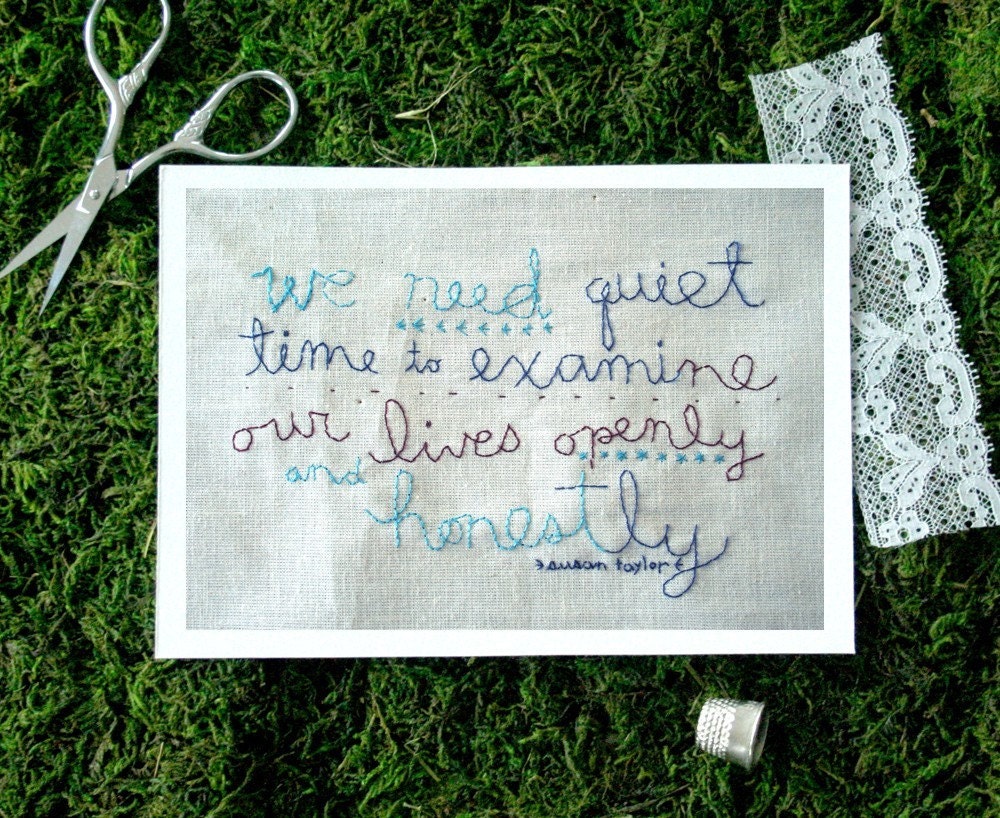 we need quiet
time to examine
our lives openly
and honestly
susan taylor